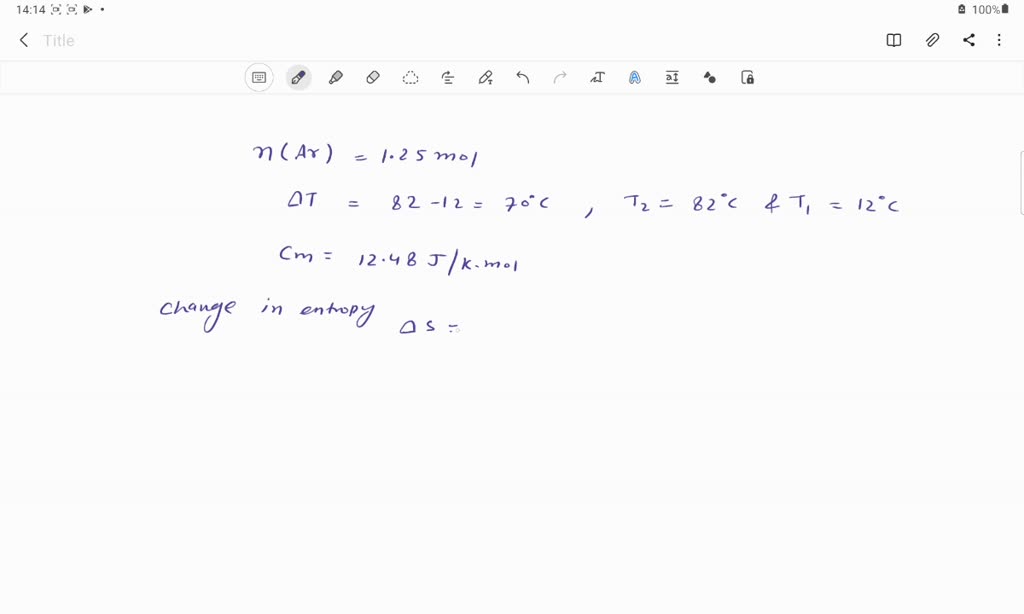 14:14 100%
Title
n(Ar) = 1.25 mol
ΔT = 82 -12 = 70°C , T₂ = 82°C & T₁ = 12°C
Cm = 12.48 J/K.mol
change in entropy ΔS =